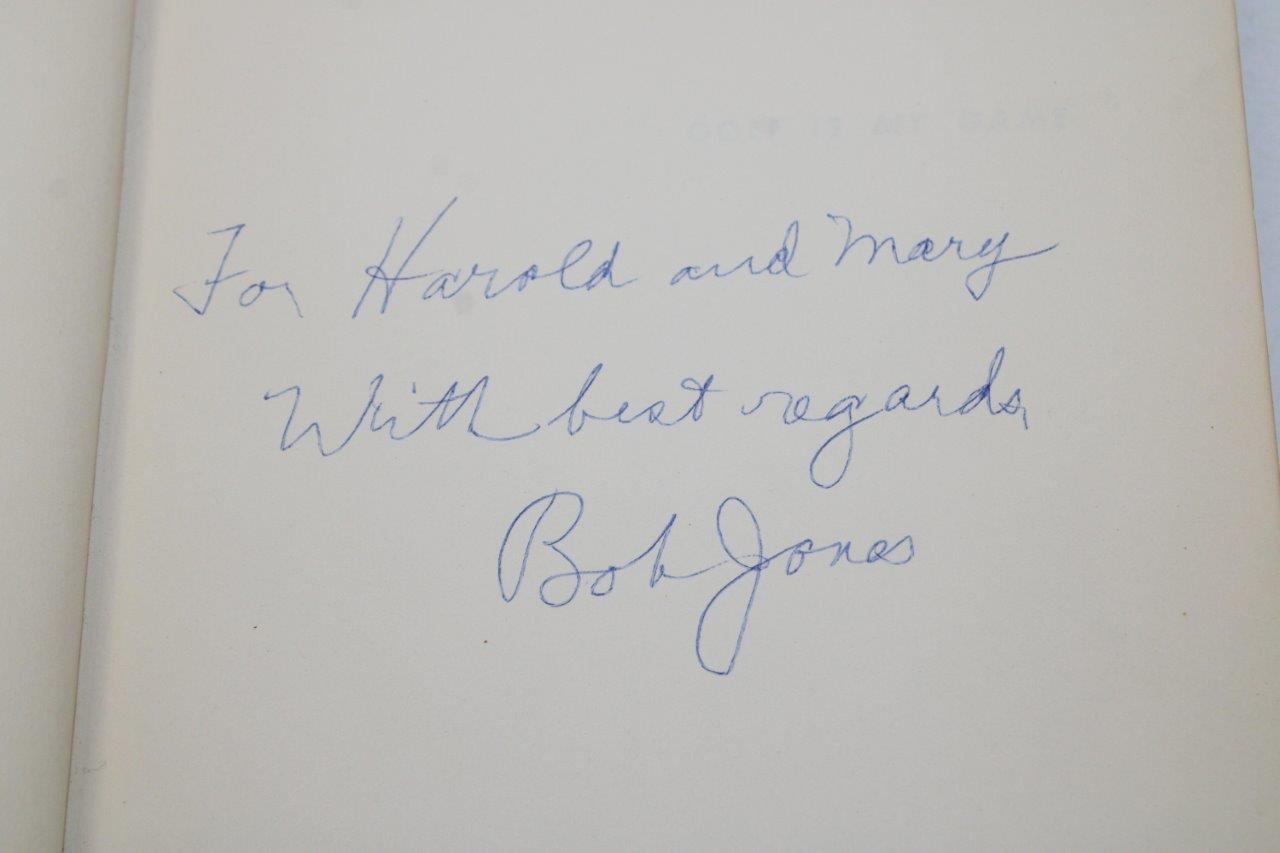 GOLF IS MY GAME
For Harold and Mary
With best regards,
Bob Jones